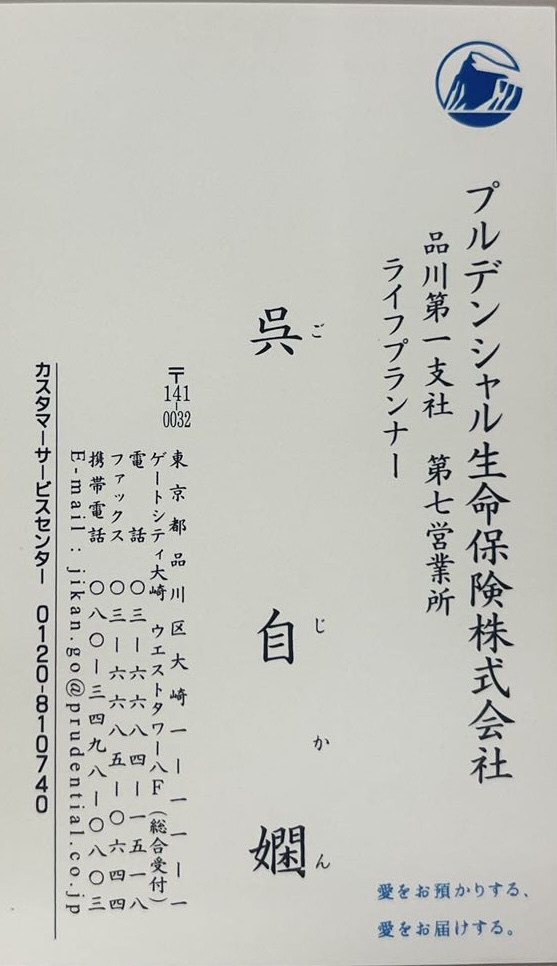 プルデンシャル生命保険株式会社
品川第一支社 第七営業所
ライフプランナー
ご じ か ん
呉 自 嫻
〒141-0032
東京都品川区大崎一ー一一ー一
ゲートシティ大崎 ウエストタワー八F(総合受付)
電話 〇三ー六六八四ー一五一八
ファックス 〇三ー六六八五ー〇六四四
携帯電話 〇八〇ー三四九八ー〇八〇三
E-mail : jikan.go@prudential.co.jp
カスタマーサービスセンター 0120-810740
愛をお預かりする、
愛をお届けする。